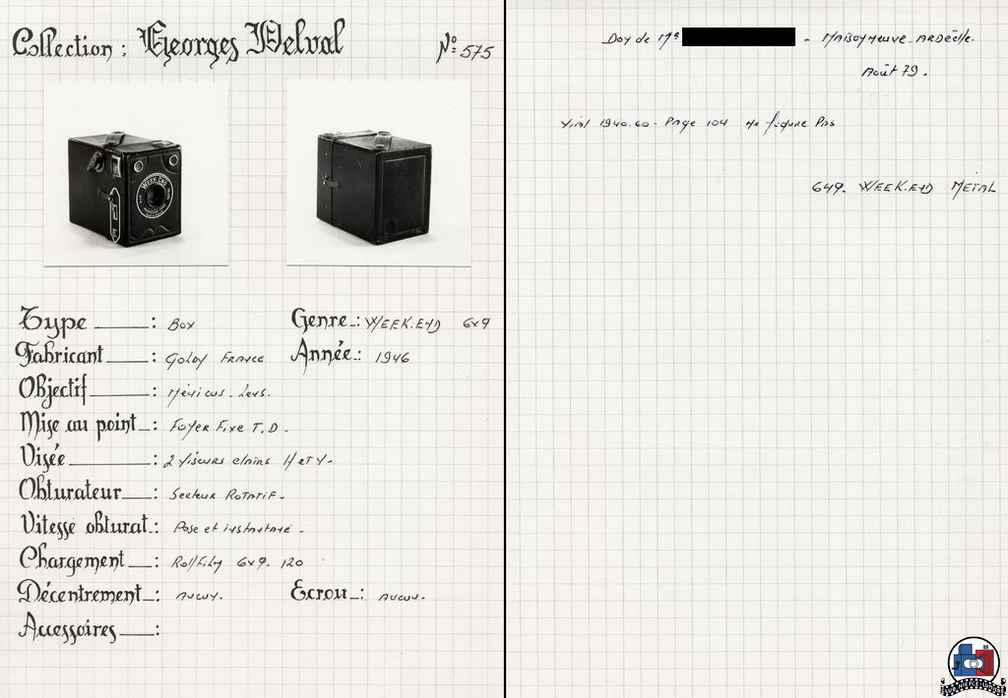 Collection : Georges Delval N° 575
WEEK END
Type : Box Genre : WEEK.END 6x9
Fabricant : Goldy France Année : 1946
Objectif : Ménicus. Lens.
Mise au point : Foyer Fixe T.D.
Visée : 2 Viseurs clairs H et V.
Obturateur : Secteur Rotatif.
Vitesse obturat. : Pose et instantané.
Chargement : Roll/Film 6x9. 120
Décentrement : Aucun. Ecrou : Aucun.
Accessoires :
Don de Mr - Maisonneuve Ardèche.
Août 79.
Vial 1940.60. Page 104 ne figure Pas
649. WEEK.END METAL